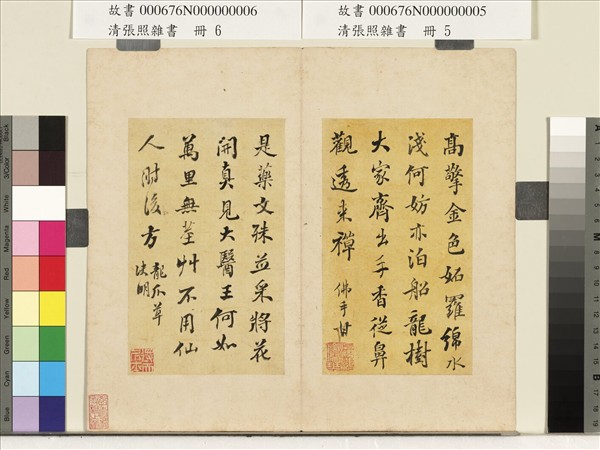 故書 000676N000000006
清張照雜書 冊 6
故書 000676N000000005
清張照雜書 冊 5
高擎金色妬羅綿水
淺何妨亦泊船龍樹
大家齊出手香從鼻
觀透東禪
佛手柑
是藥文殊並采將花
開真見大醫王何如
萬里無莖艸不用仙
人肘後方
龍爪草
决明
Black
3/Color
White
Magenta
Red
Yellow
Green
Cyan
Blue